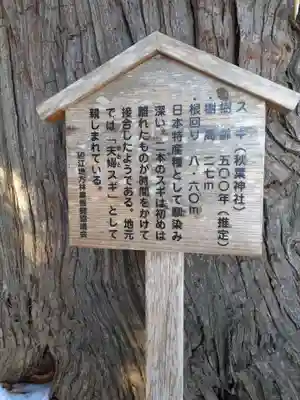 スギ（秋葉神社）
・樹齢　五〇〇年（推定）
・樹高　二七ｍ
・根回り　八・六〇ｍ
日本特産種として馴染み
深い。二本のスギは初めは
離れたものが時間をかけて
接合したようである。地元
では「夫婦スギ」として
親しまれている。